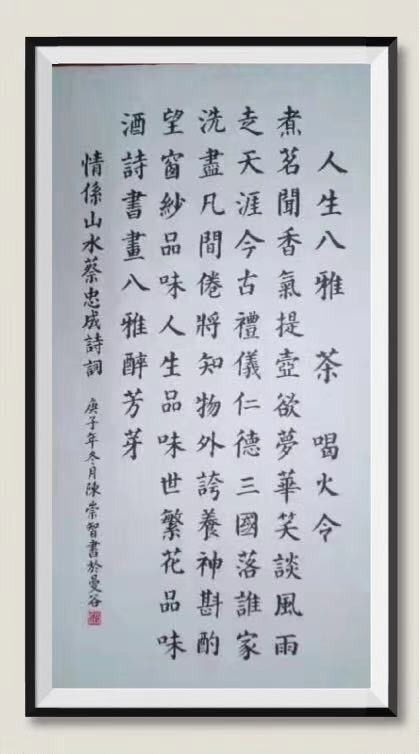 人生八雅 茶 喝火令
煮茗聞香氣提壺欲夢華笑談風雨
走天涯今古禮儀仁德三國落誰家
洗盡凡間倦將知物外誇養神斟酌
望窗紗品味人生品味世繁花品味
酒詩書畫八雅醉芳芽
情係山水蔡忠成詩詞 庚子年冬月陳崇智書於曼谷